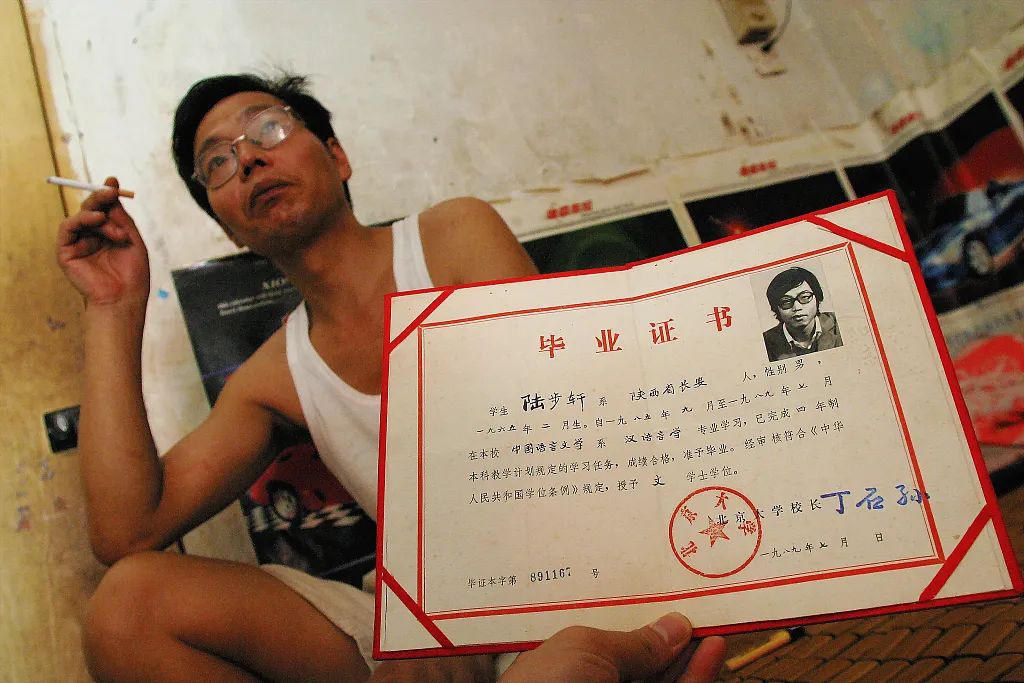 毕业证书
学生 陆步轩 系 陕西省长安 人，性别 男，
一九六五年 二 月生。自一九八五年 九 月至一九八九年 七 月
在本校 中国语言文学 系 汉语言学 专业学习，已完成四年制
本科教学计划规定的学习任务，成绩合格，准予毕业。经审核符合《中华
人民共和国学位条例》规定，授予 文 学士学位。
北京大学
北京大学校长 丁石孙
一九八九年七月 日
毕证本字第 891167 号